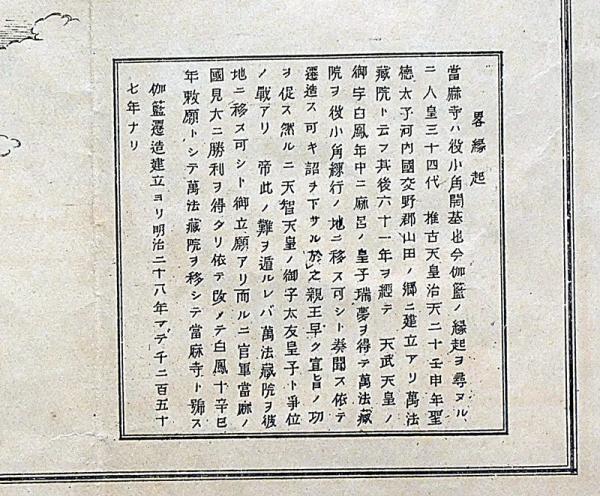 畧緣起
當麻寺ハ役小角開基也今伽藍ノ緣起ヲ尋ヌル、
ニ人皇三十四代　推古天皇治天二十壬申年聖
德太子河內國交野郡山田ノ鄕ニ建立アリ萬法
藏院ト云フ其後六十一年ヲ經テ　天武天皇ノ
御宇白鳳年中ニ麻呂ノ皇子瑞夢ヲ得テ萬法藏
院ヲ役小角練行ノ地ニ移ス可シト奏聞ス依テ
遷造ス可キ詔ヲ下サル於之親王早ク宣旨ノ功
ヲ促ス然ルニ天智天皇ノ御子太友皇子ト爭位
ノ戰アリ　帝此ノ難ヲ遁ルレバ萬法藏院ヲ彼
地ニ移ス可シト御立願アリ而ルニ官軍當麻ノ
國見大ニ勝利ヲ得タリ依テ改メテ白鳳十辛巳
年敕願トシテ萬法藏院ヲ移シテ當麻寺ト號ス
伽藍遷造建立ヨリ明治二十八年マデ千二百五十
七年ナリ